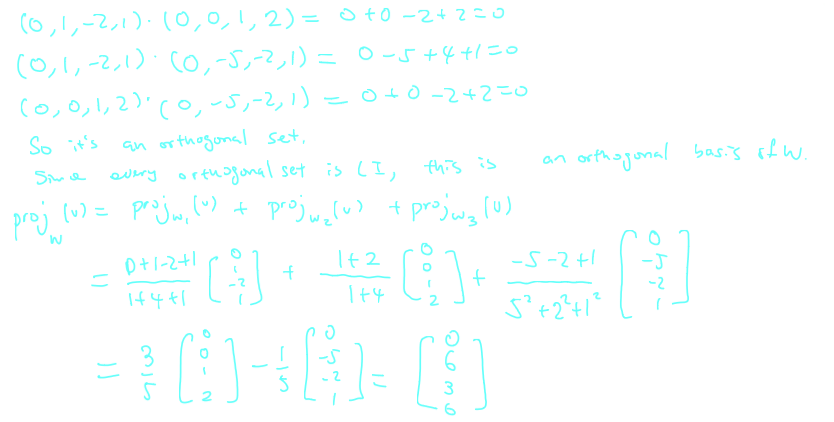 (0,1,-2,1)·(0,0,1,2) = 0+0-2+2=0
(0,1,-2,1)·(0,-5,-2,1) = 0-5+4+1=0
(0,0,1,2)·(0,-5,-2,1) = 0+0-2+2=0
So it's an orthogonal set.
Since every orthogonal set is LI, this is an orthogonal basis of W.
proj_W (u) = proj_{w_1}(u) + proj_{w_2}(u) + proj_{w_3}(u)
= \frac{0+1-2+1}{1+4+1} \begin{bmatrix} 0 \\ 1 \\ -2 \\ 1 \end{bmatrix} + \frac{1+2}{1+4} \begin{bmatrix} 0 \\ 0 \\ 1 \\ 2 \end{bmatrix} + \frac{-5-2+1}{5^2+2^2+1^2} \begin{bmatrix} 0 \\ -5 \\ -2 \\ 1 \end{bmatrix}
= \frac{3}{5} \begin{bmatrix} 0 \\ 0 \\ 1 \\ 2 \end{bmatrix} - \frac{1}{5} \begin{bmatrix} 0 \\ -5 \\ -2 \\ 1 \end{bmatrix} = \begin{bmatrix} 0 \\ 6 \\ 3 \\ 6 \end{bmatrix}